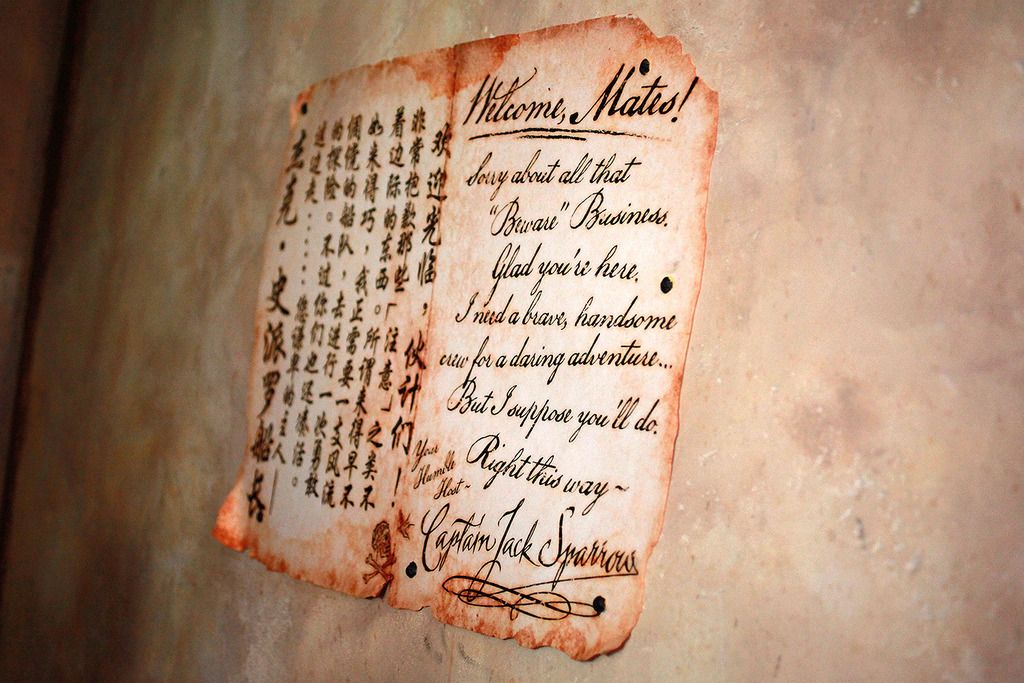 欢迎光临，伙计们！
非常抱歉那些「注意」之类不
着边际的东西。所谓来得早不
如来得巧，我正需要一支风流
倜傥的船队，去进行一次勇敢
的探险。不过你们也还凑活。
这边走……您谦卑的主人
杰克·史派罗船长
Welcome, Mates!
Sorry about all that
"Beware" Business.
Glad you're here.
I need a brave, handsome
crew for a daring adventure...
But I suppose you'll do.
Right this way~
Your
Humble
Host~
Captain Jack Sparrow